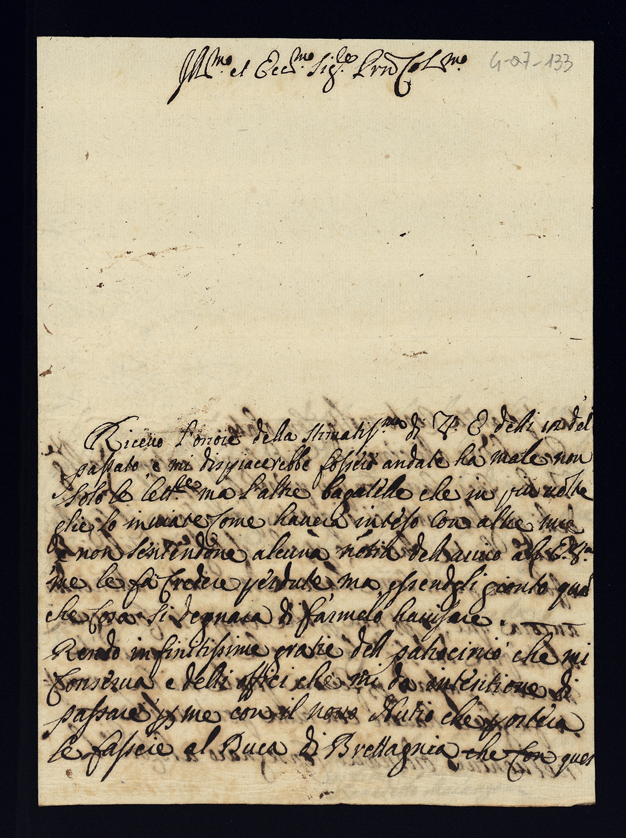 Ill.mo et Ecc.mo Sig.re Prn Col.mo
4-07-133
Riceuo l'onore della stimatis.ma di V. E. delli 12 del
passato e mi dispiacerebbe fossero andate ha male non
solo le lett.re ma l'altre bagatelle che in più uolte
glie lo inuiate come hauera inteso con altre mia
e non sentendone alcuna notitia dell'auiso a V. E.
me le fa credere perdute ma essendogli gionto qual
che cosa si degnara di farmelo hauisare.
Rendo infinitissime gratie dell patrocinio che mi
conserua e delli offici che mi da intentione di
passare per me con il nouo Nutio che portera
le fascie al Duca di Brettagnia che con ques